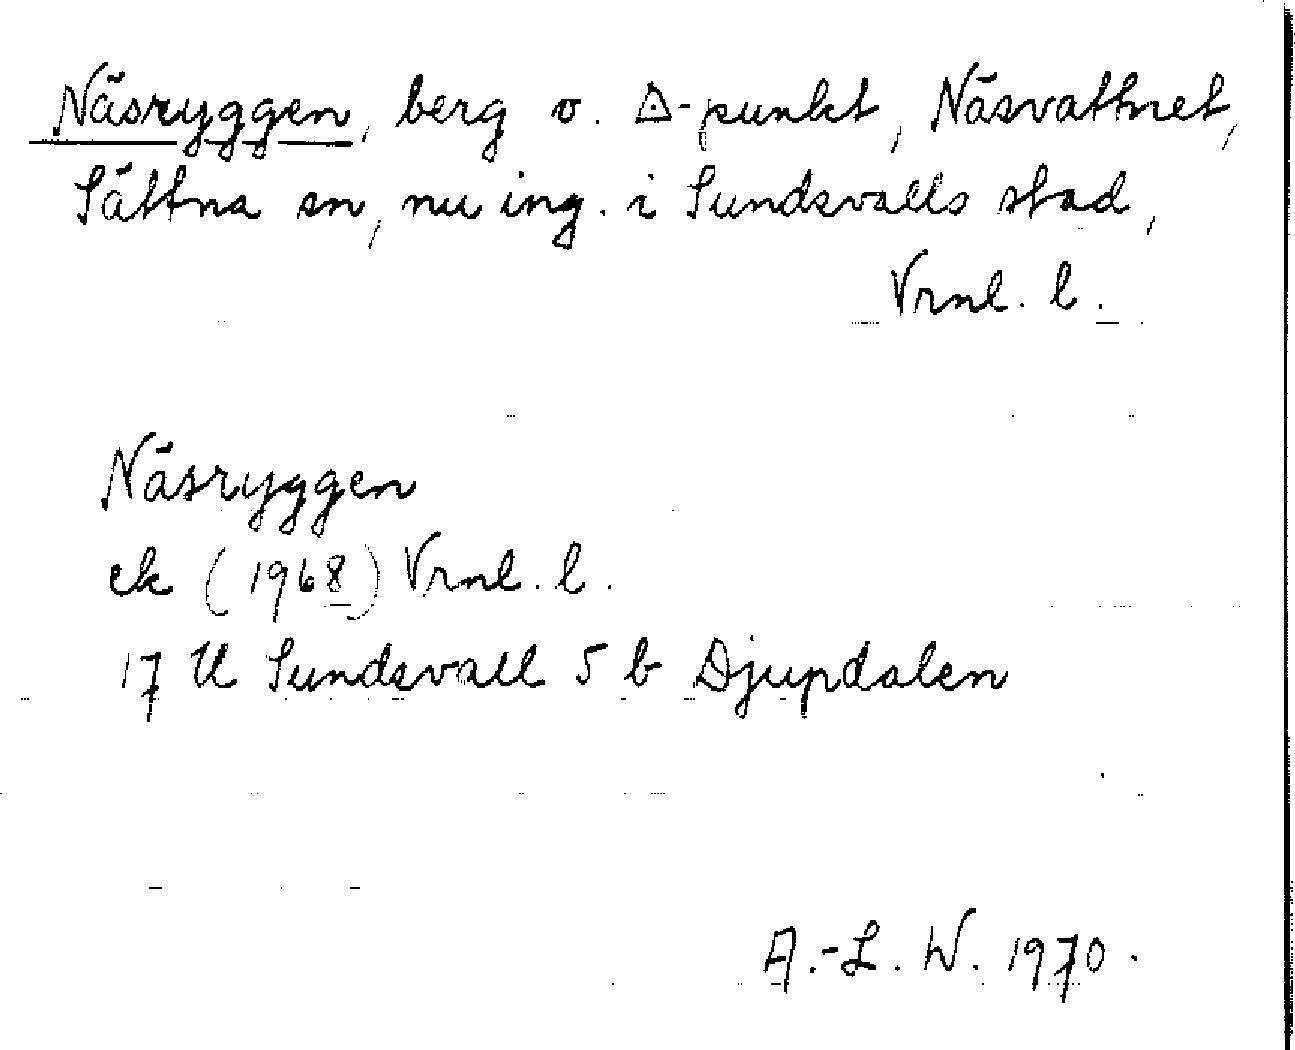 Näsryggen, berg o. △-punkt, Näsvattnet,
Sättna sn, nu ing. i Sundsvalls stad,
Vrnl. l.
Näsryggen
ek (1968) Vrnl. l.
17 H Sundsvall 5 b Djupdalen
A.-L. W. 1970.